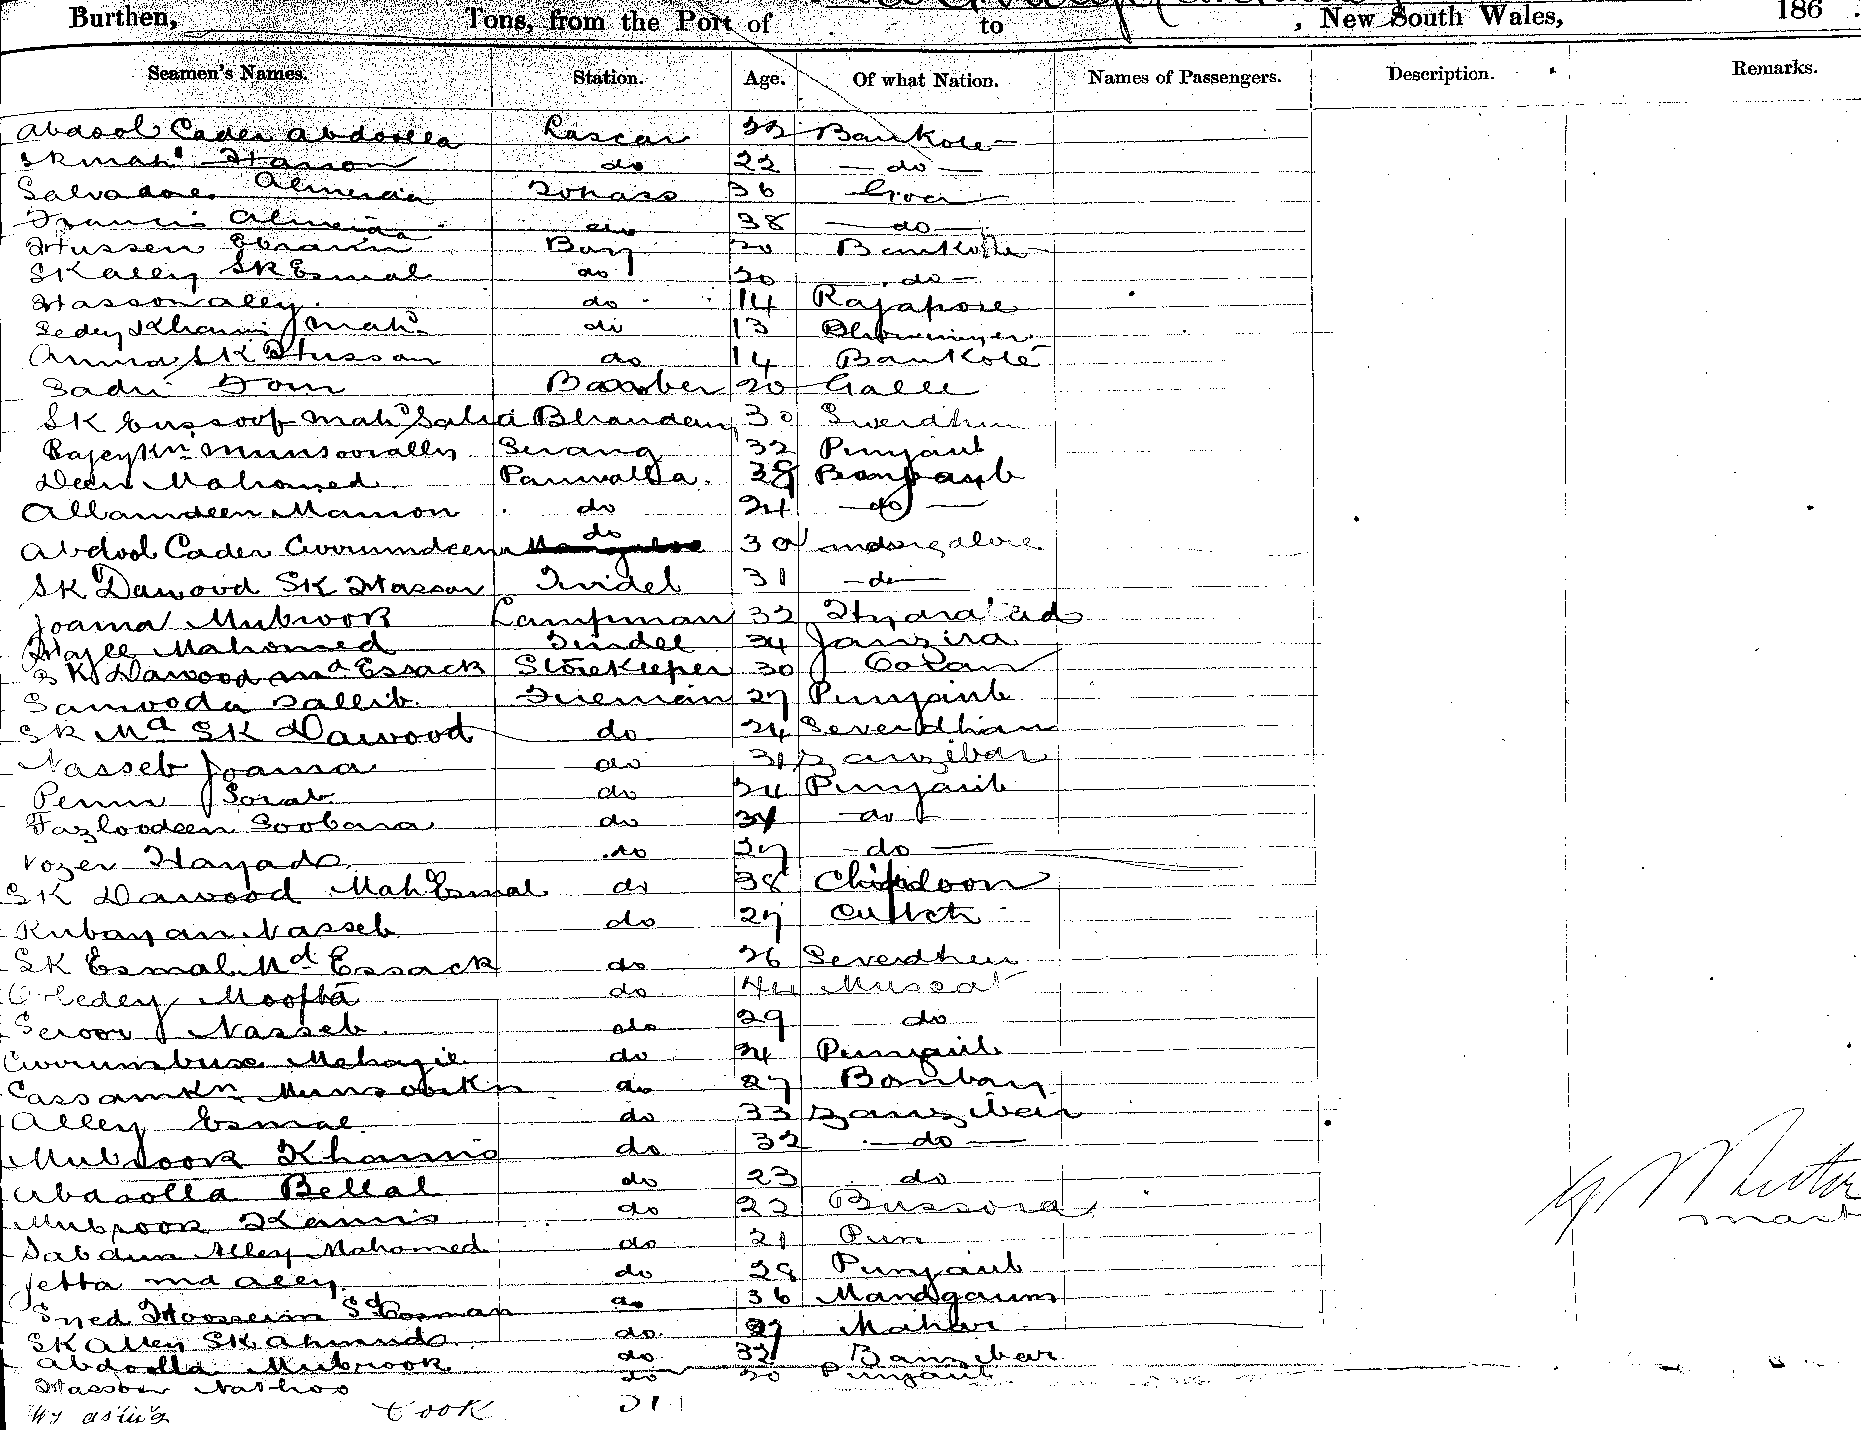 Burthen, Tons, from the Port of to , New South Wales, 186
Seamen's Names. Station. Age. Of what Nation. Names of Passengers. Description. Remarks.
Abdool Cader Abdoolla Lascar 33 Bankote
Skmahd Hasson do 22 do
Salvadore Almeida Tonass 36 Goa
Francis Almeida do 38 do
Hussen Ebraim Boy 20 Bankote
SK alley SK Esmal do 20 do
Hasson alley do 14 Rajapore
Sedey Khamis mahd do 13
SK Hussan do 14 Bankote
Sadri Dom Baaber 20 Galle
SK Eussoof Mahd Salid Bhandary 30 Sweidhun
Munsoorally Serang 32 Punjaub
Deen Mahomed Paniwalla 38
Allamdeen Mamon do 24 do
Abdool Cader Coorumdeen do 30 mangalore
SK Dawood SK Hassan Tindel 31 do
Joama Mubrook Lampman 32 Hydra'ad
Hajee Mahomed Tindel 34 Janzira
SK Dawood md Essack Storekeeper 30 Cocan
Samvoda Sallib Fireman 27 Punjaub
SK Md SK Dawood do 24 Severdhan
Nasseb Joama do 31 Zanzibar
Sorab do 24 Punjaub
Fazloodeen Soobara do 34 do
Vozer Hayado do 27 do
SK Dawood Mah Esmal do 38 Chiploon
Kubayan Nasseb do 27 Cuttch
SK Esmal Md Essack do 26 Severdhun
Moofta do 44 Muscat
Seroor Nasseb do 29 do
Coorumbux do 24 Punjaub
Cassamkn Munsobkn do 27 Bonbay
Alley Esmal do 33 Zanzibar
Mubrook Khamis do 32 do
Abdoolla Bellal do 23 do
Mubrook Kamis do 22 Bussora
Alley Mahomed do 21 Pun
Jetta md alley do 28 Punjaub
Syed Hoossein Sd Cosman do 36 Mandgaum
SK Alley SK Ahmud do 27
Abdoolla Mubrook do 32 Zanzibar
Hasson Nathoo do 30 Punjaub
Cook 31